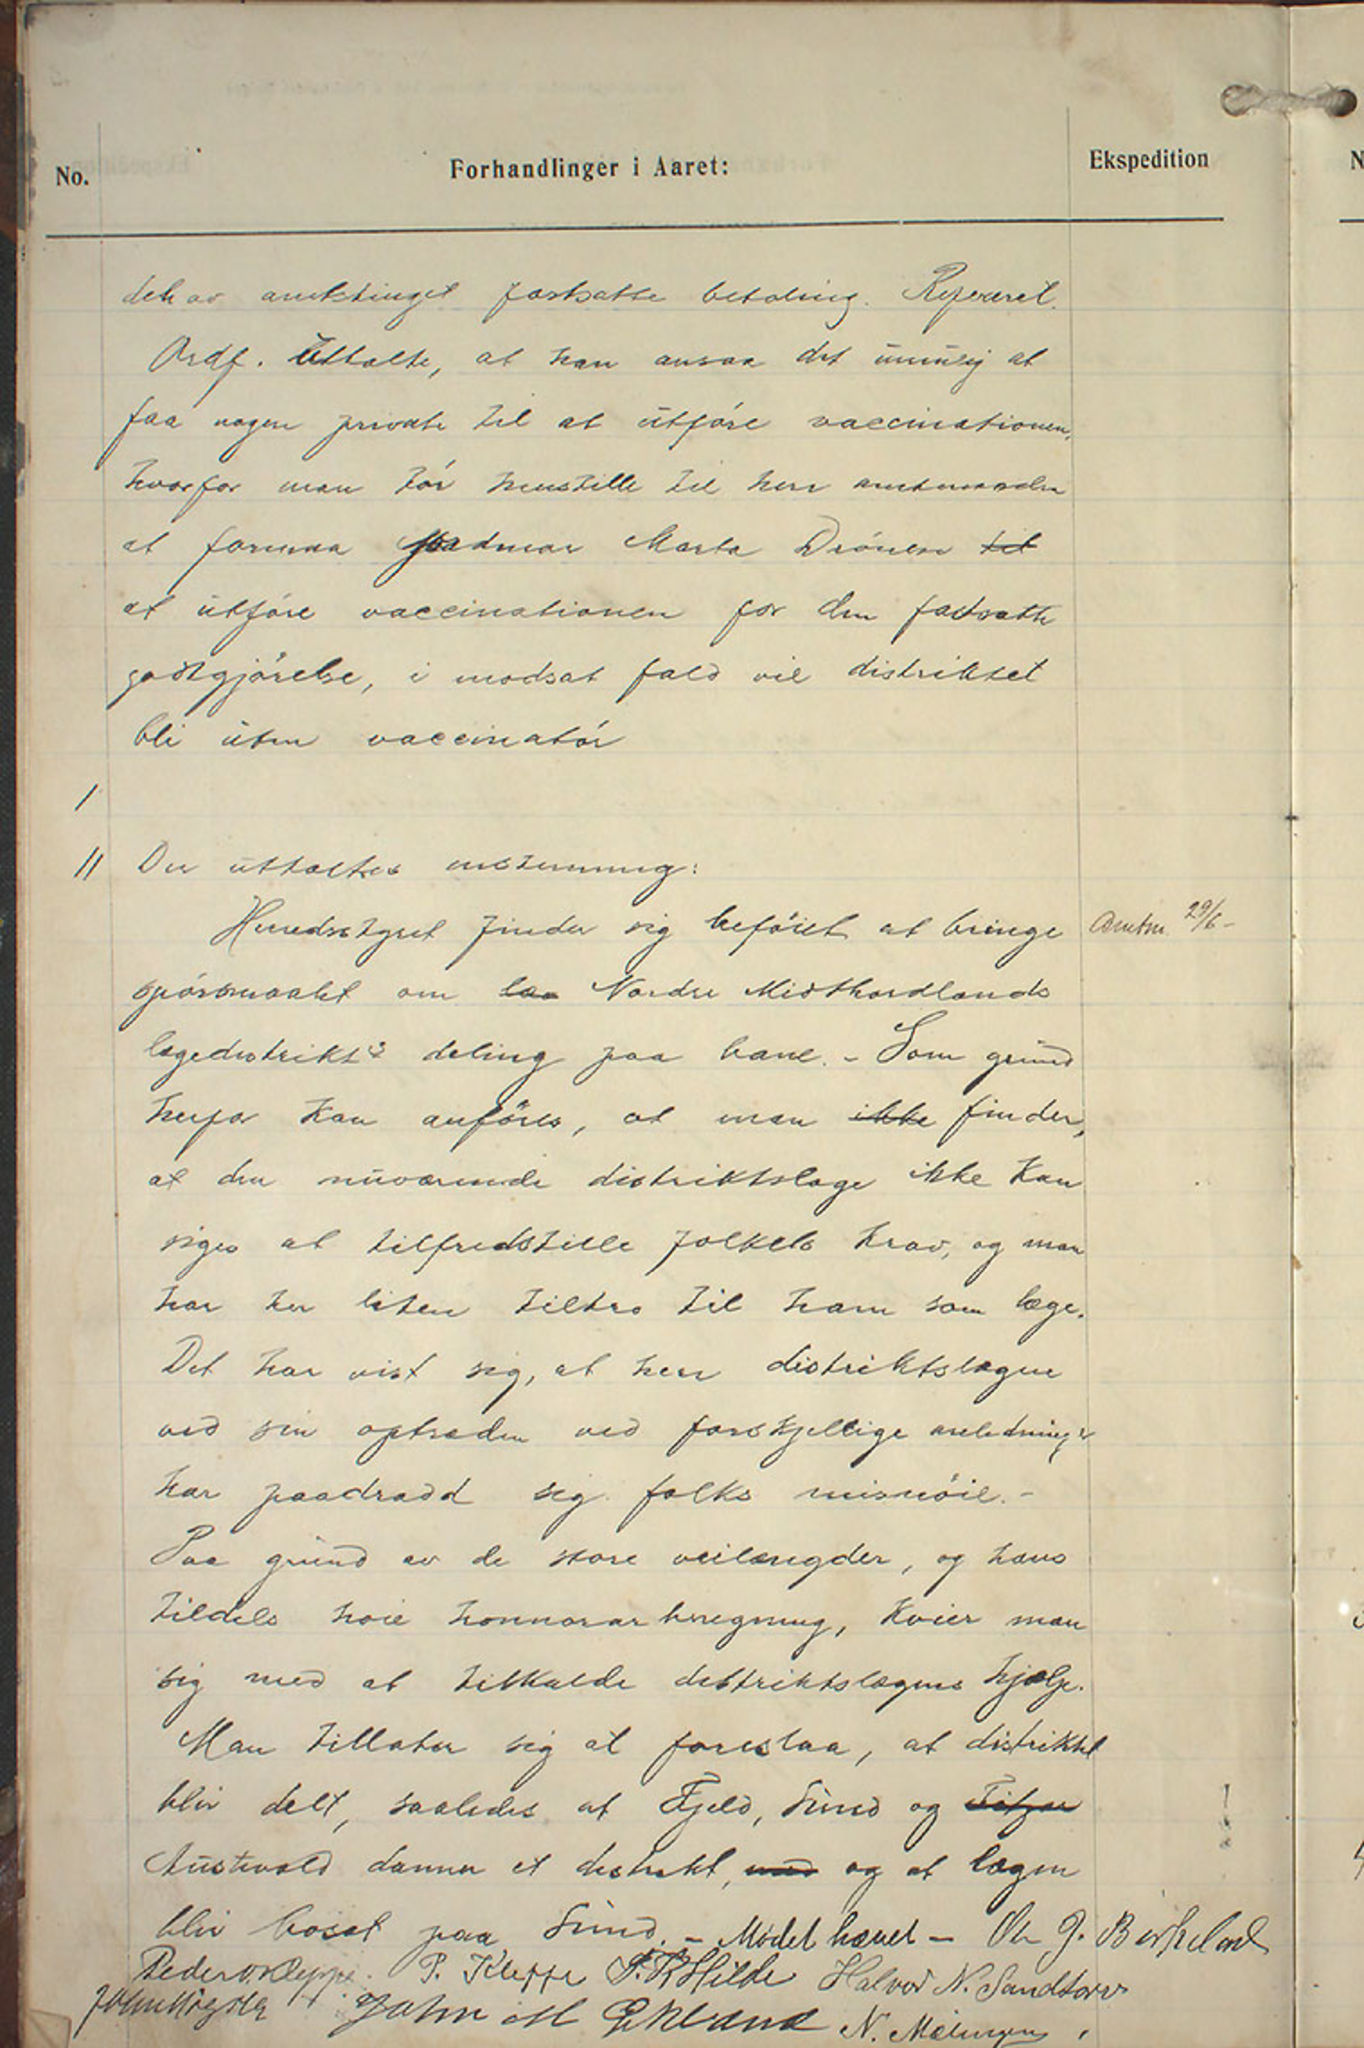 No.
Forhandlinger i Aaret:
Ekspedition
den av amtstinget fastsatte betaling. Referert.
Ordf. uttalte, at han ansaa det umulig at
faa nogen private til at utføre vaccinationen,
hvorfor man tør henstille til herr amtmanden
at formaa jordmor Marta Drönen til
at utføre vaccinationen for den fastsatte
godtgjörelse, i modsat fald vil distriktet
bli uten vaccinatör
I
II Der uttaltes enstemmig:
Herredsstyret finder sig beføiet at bringe
Amtm 29/6 -
spörsmaalet om Nordre Midthordlands
lægedistrikts deling paa bane. - Som grund
herfor kan anföres, at man ikke finder,
at den nuværende distriktslæge ikke kan
siges at tilfredstille folkets krav, og man
har her liten tiltro til ham som læge.
Det har vist sig, at herr distriktslægen
ved sin optræden ved forskjellige anledninger
har paadradd sig folks misnöie. -
Paa grund av de store veilængder, og hans
tildels høie honnorarberegning, kvier man
sig med at tilkalde distriktslægens hjælp.
Man tillater sig at foreslaa, at distriktet
blir delt, saaledes at Fjeld, Sund og Fitjar
Austevold danner et distrikt, med og at lægen
blir bosat paa Sund. - Mødet hævet - Ole J. Birkeland
Peder O. Kleppe. P. Kleppe Halvor N. Sandtorv
John Ekeland N. Mælingen